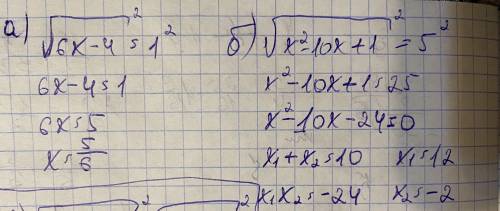 а) √(6x-4)² = 1²
6x-4=1
6x=5
x=5/6
б) √(x²-10x+1)² = 5²
x²-10x+1=25
x²-10x-24=0
x₁+x₂=10 x₁=12
x₁x₂=-24 x₂=-2